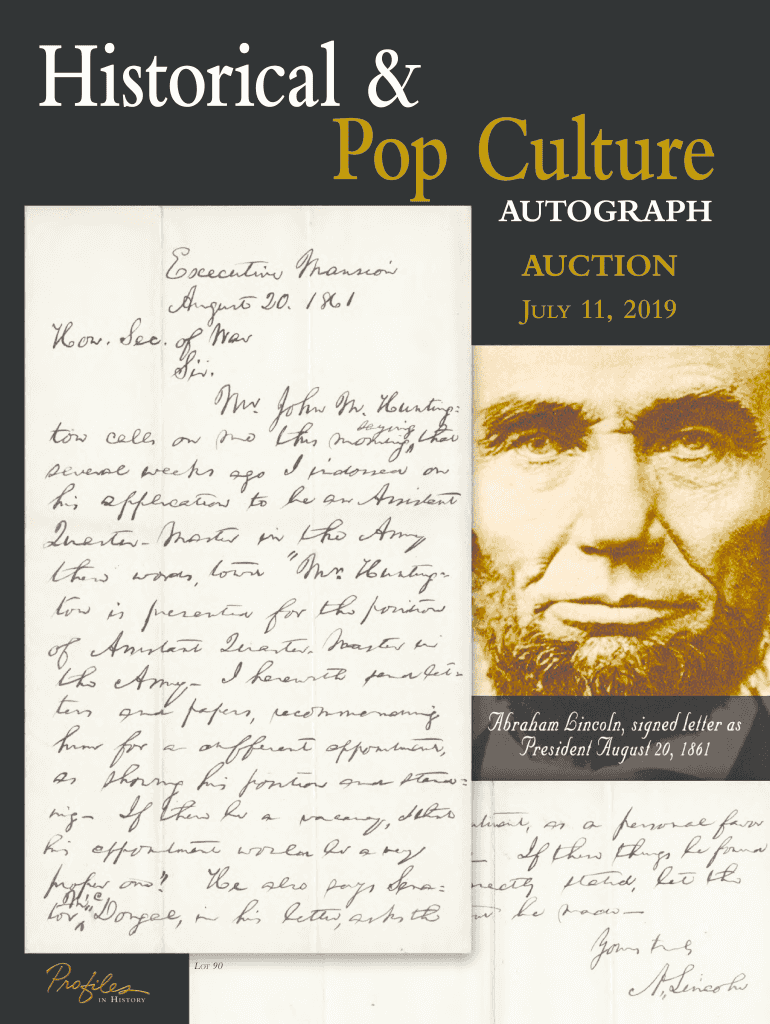 Historical &
Pop Culture
AUTOGRAPH
AUCTION
July 11, 2019
Executive Mansion
August 20. 1861
Hon. Sec. of War
Sir.
Mr. John M. Hunting=
ton calls on me this morning, saying that
several weeks ago I indorsed on
his application to be an Assistant
Quarter-Master in the Army
these words, "Mr. Hunting=
ton is presented for the position
of Assistant Quarter-Master in
the Army— I herewith send let=
ters and papers, recommending
him for a different appointment,
as showing his position and stand=
ing— If there be a vacancy, I think
his appointment would be a very
proper one". He also says Sena=
tor McDougal, in his letter, asks the
Abraham Lincoln, signed letter as
President August 20, 1861
as a personal favor
If these things be found
stated, let the
be made—
Yours truly
A. Lincoln
Lot 90
Profiles
in History